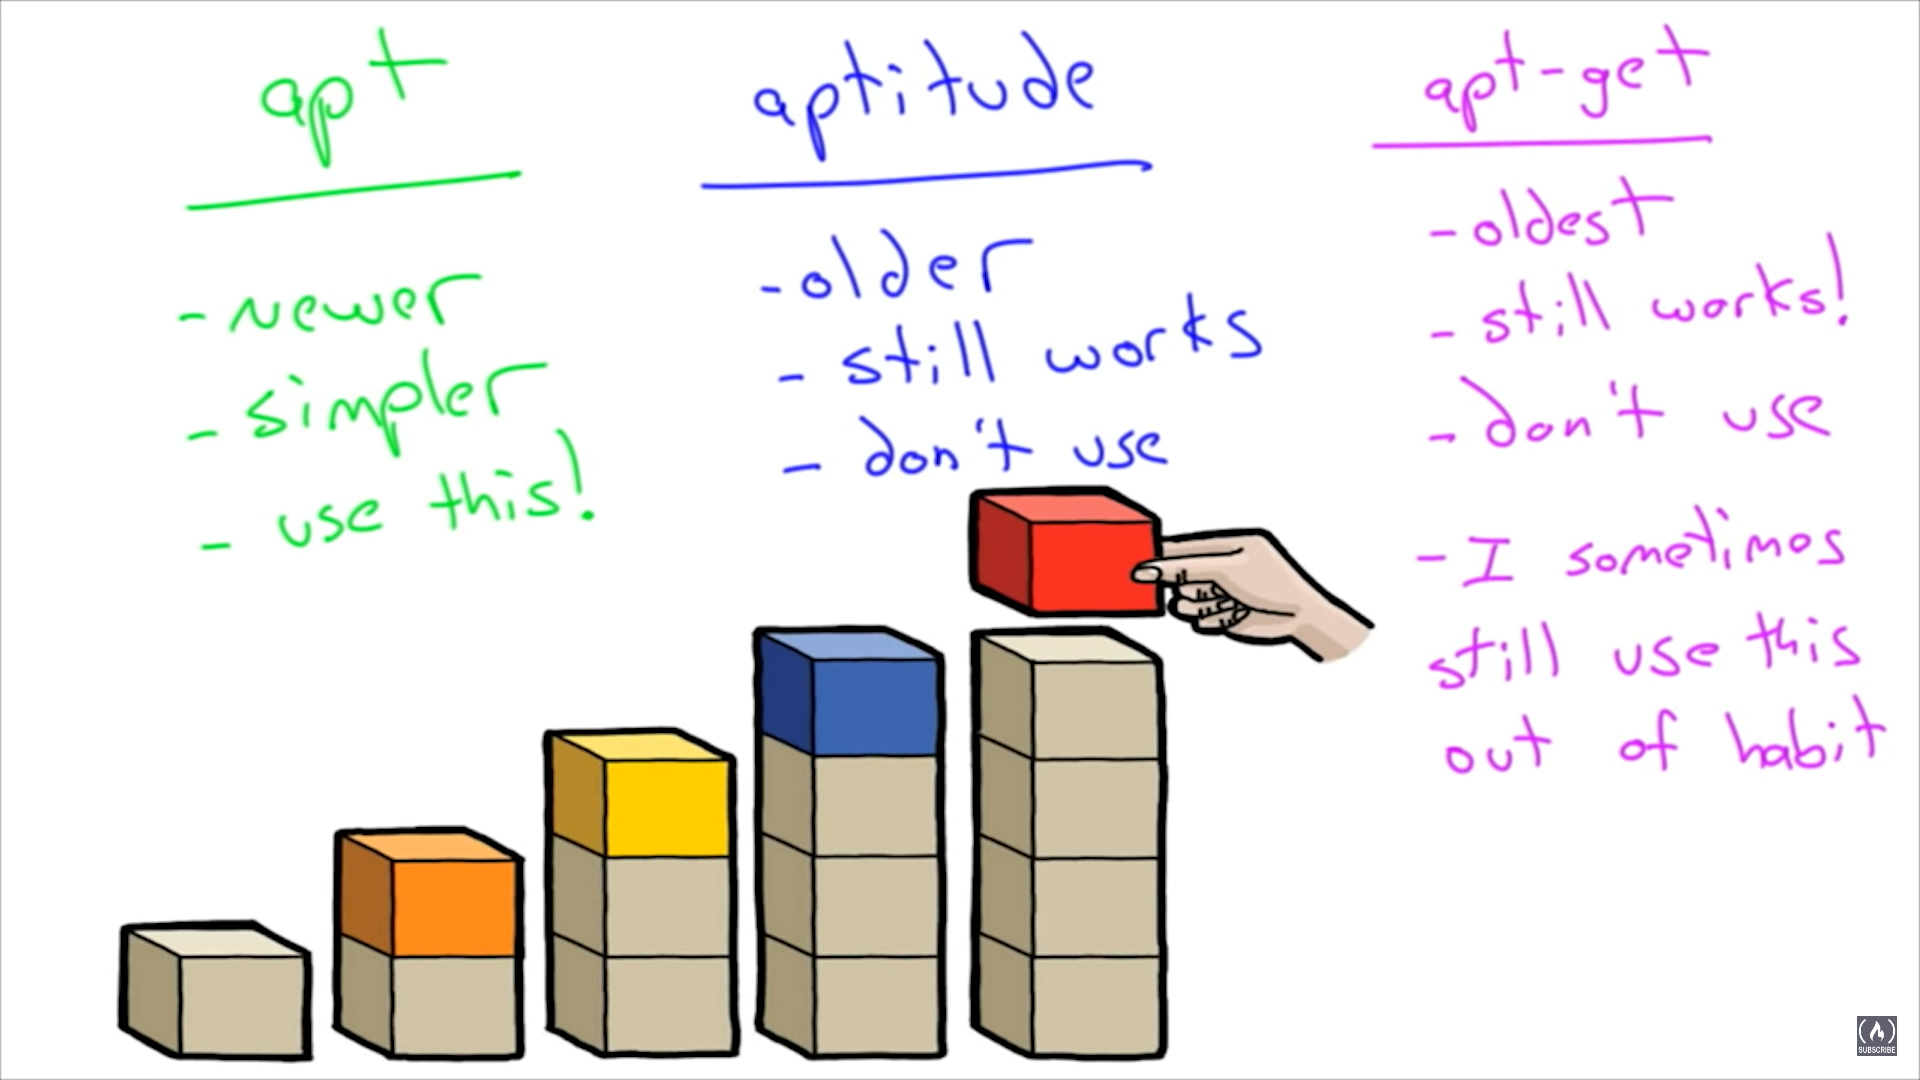 apt
- newer
- simpler
- use this!
aptitude
- older
- still works
- don't use
apt-get
- oldest
- still works!
- don't use
- I sometimes
still use this
out of habit
SUBSCRIBE